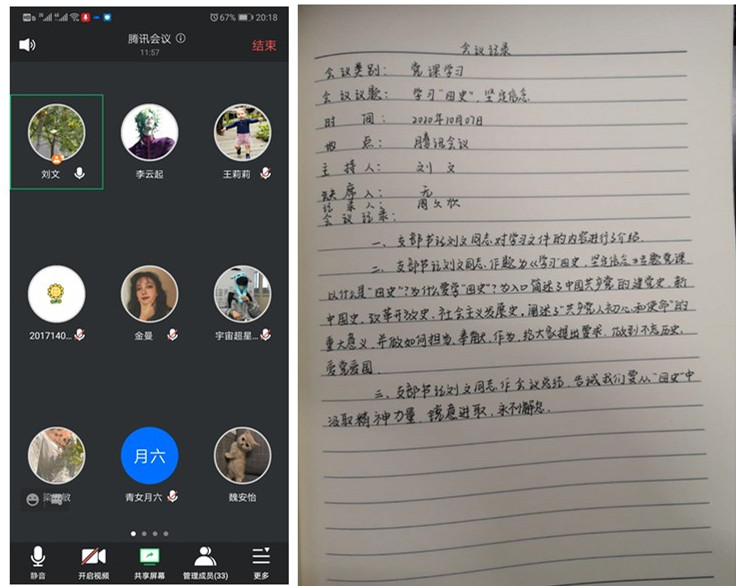 67% 20:18
腾讯会议
11:57
结束
刘文
李云起
王莉莉
2017140...
金曼
宇宙超星...
敏
月六
青女月六
魏安怡
静音
开启视频
共享屏幕
管理成员(33)
更多
会议记录
会议类别: 党课学习
会议议题: 学习"四史",坚定信念
时间: 2020年10月07日
地点: 腾讯会议
主持人: 刘文
缺席人: 无
记录人: 周欠欣
会议记录:
一、支部书记刘文同志对学习文件的内容进行了介绍.
二、支部书记刘文同志作题为《学习"四史",坚定信念》主题党课
以什么是"四史"?为什么要学"四史"?为入口简述了中国共产党的建党史,新
中国史,改革开放史,社会主义发展史,阐述了"共产党人初心和使命"的
重大意义,并做如何担当,奉献,作为,给大家提出要求,做到不忘历史,
爱党爱国.
三、支部书记刘文同志作会议总结,告诫我们要从"四史"中
汲取精神力量,锐意进取,永不懈怠.